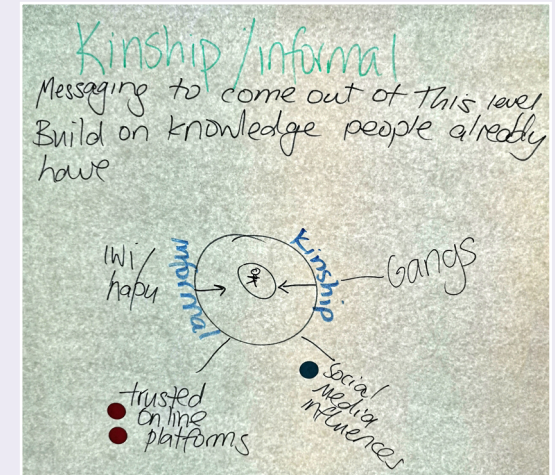 Kinship/informal
Messaging to come out of This level
Build on knowledge people already
have
Iwi/
hapu
informal
Kinship
Gangs
trusted
online
platforms
Social
Media
influences